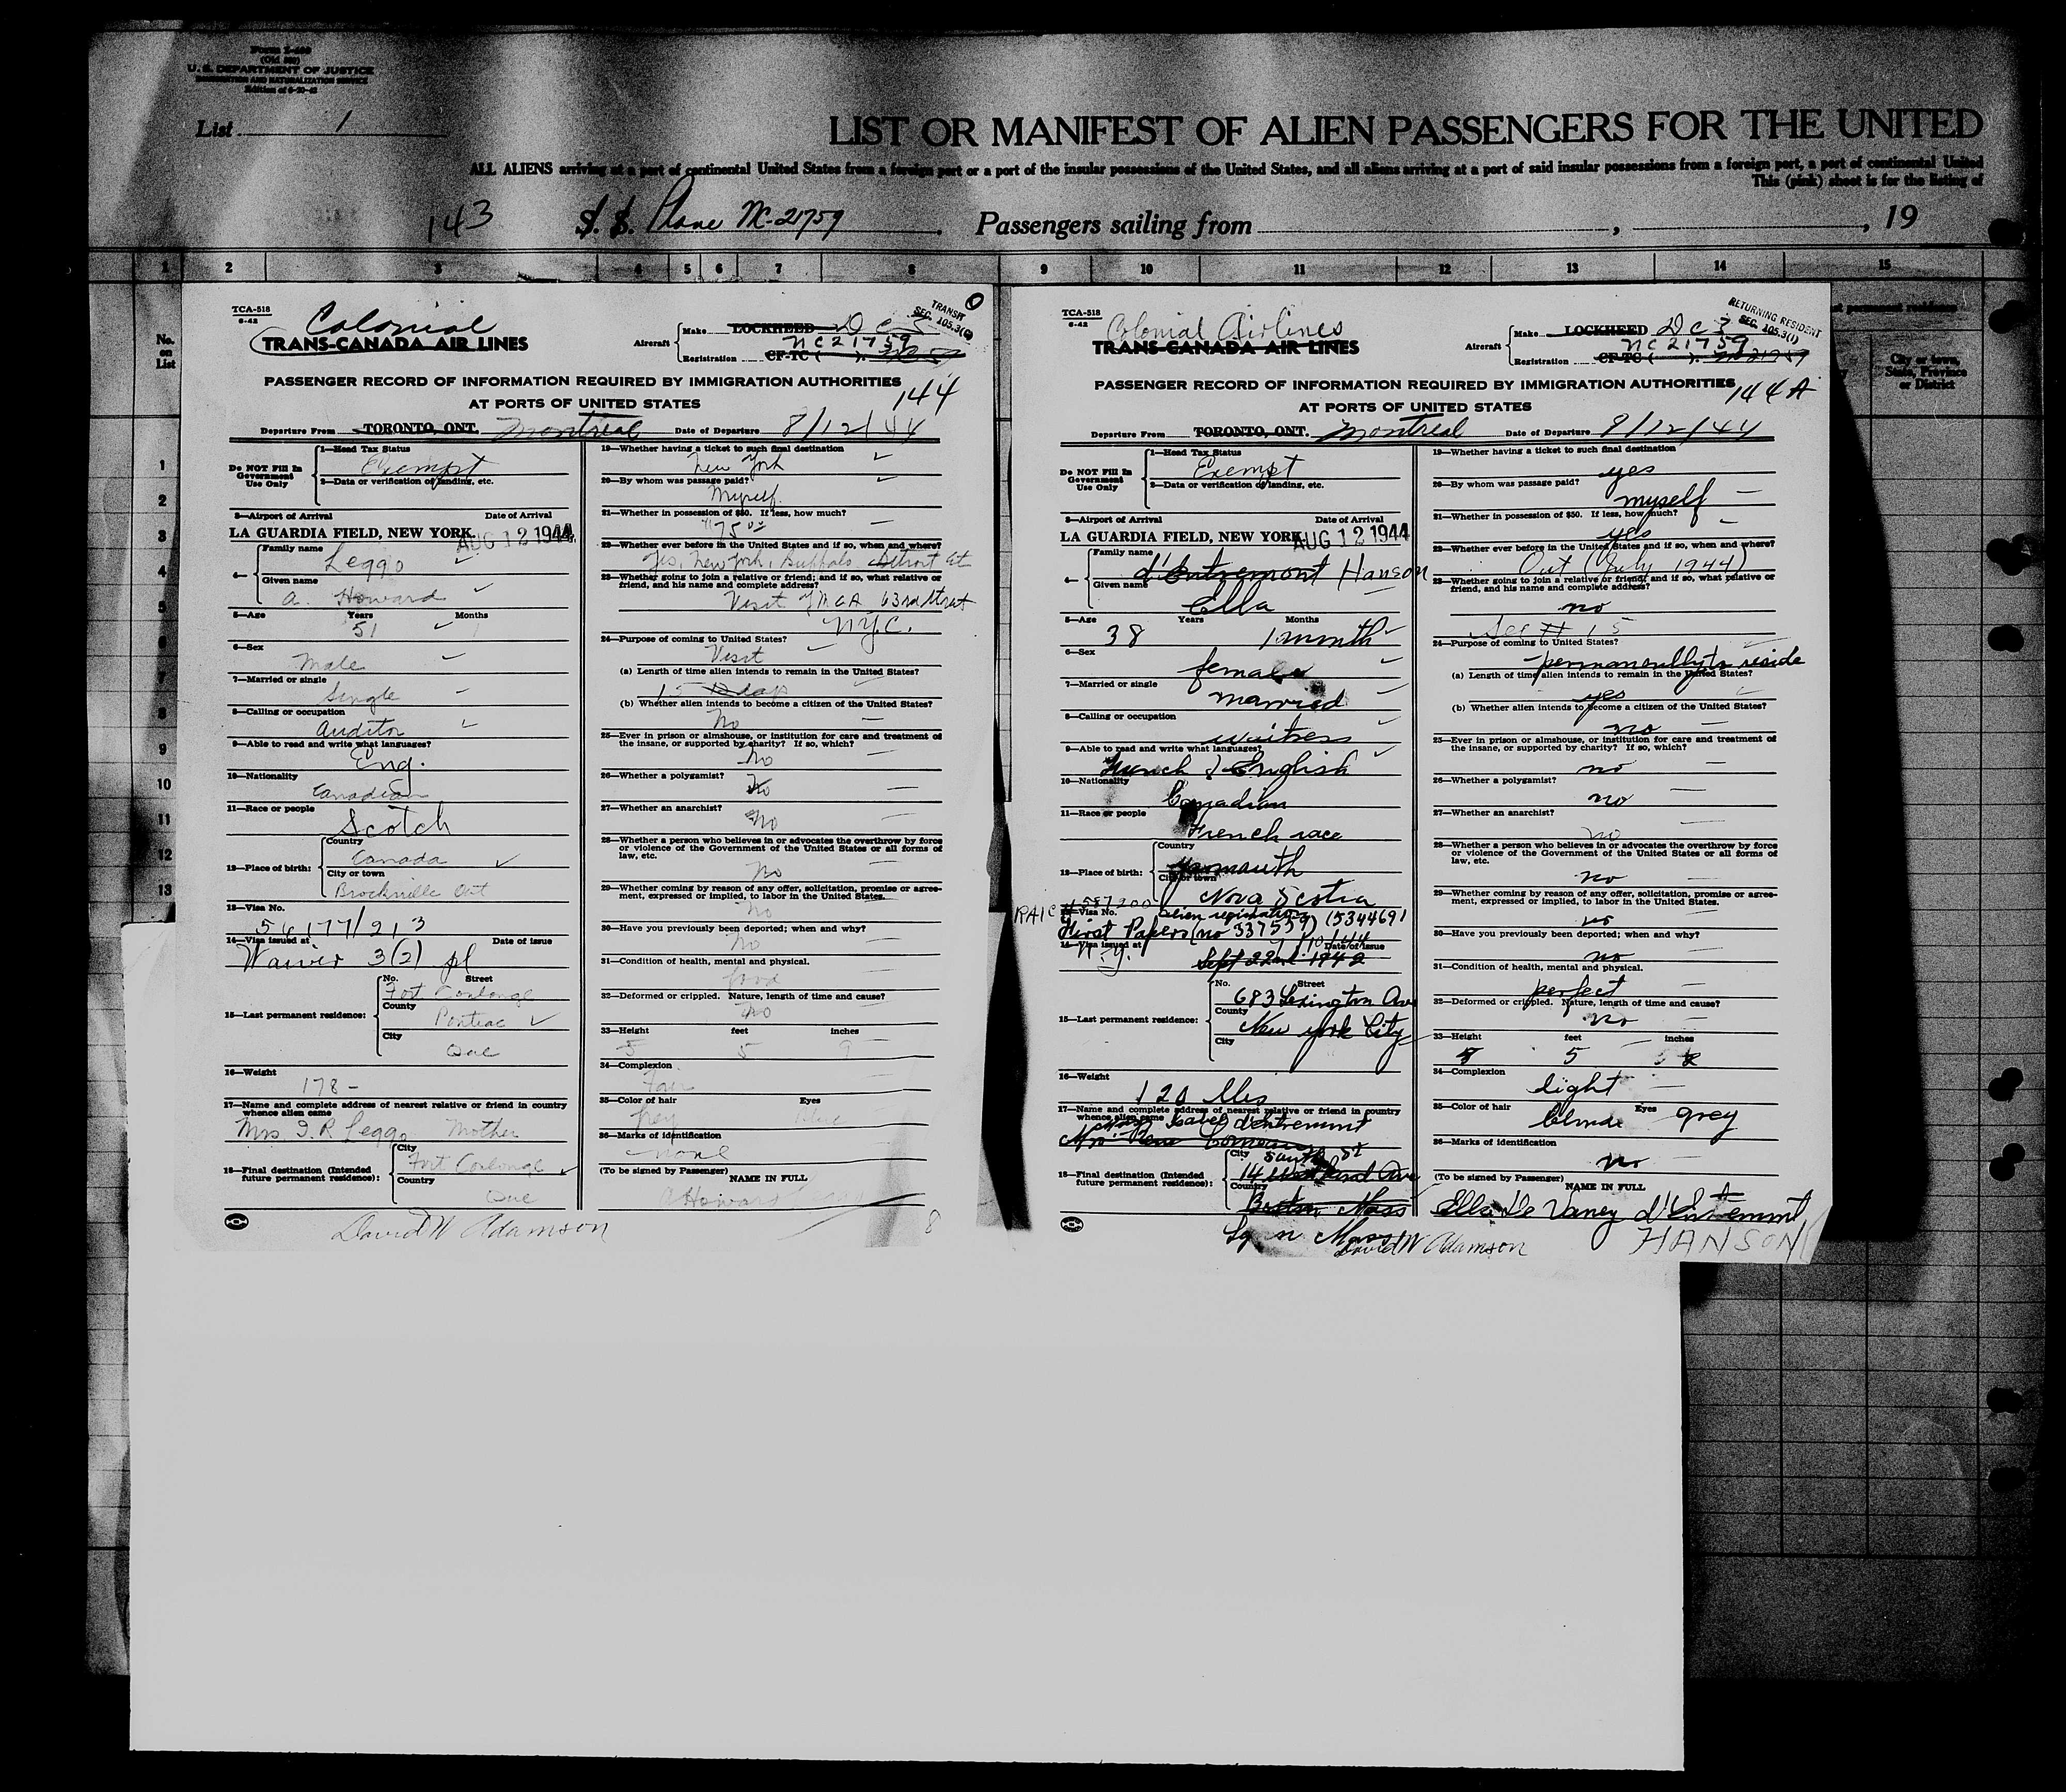 Form I-466
(Old 500)
U. S. DEPARTMENT OF JUSTICE
IMMIGRATION AND NATURALIZATION SERVICE
List 1
LIST OR MANIFEST OF ALIEN PASSENGERS FOR THE UNITED
ALL ALIENS arriving at a port of continental United States from a foreign port or a port of the insular possessions of the United States, and all aliens arriving at a port of said insular possessions from a foreign port, a port of continental United
This (pink) sheet is for the listing of
143 S. S. Plane NC-21759 Passengers sailing from , , 19
1 2 3 4 5 6 7 8 9 10 11 12 13 14 15
No. on List
1
2
3
4
5
6
7
8
9
10
11
12
13
TCA-518
6-42
Colonial
TRANS-CANADA AIR LINES
TRANSIT
SEC. 105.3(
Aircraft Make LOCKHEED DC3
NC21759
Registration CF-TC ( ).
PASSENGER RECORD OF INFORMATION REQUIRED BY IMMIGRATION AUTHORITIES
AT PORTS OF UNITED STATES
144
Departure From TORONTO, ONT. Montreal Date of Departure 8/12/44
Do NOT Fill In Government Use Only
1—Head Tax Status
Exempt
2—Data or verification of landing, etc.
3—Airport of Arrival Date of Arrival
LA GUARDIA FIELD, NEW YORK. AUG 12 1944
4— Family name
Leggo
Given name
A. Howard
5—Age Years Months
51
6—Sex
Male
7—Married or single
Single
8—Calling or occupation
Auditor
9—Able to read and write what languages?
Eng.
10—Nationality
Canadian
11—Race or people
Scotch
12—Place of birth: Country
Canada
City or town
Brockville Ont
13—Visa No.
54177/213
14—Visa issued at Date of issue
Waiver 3(2) pl
15—Last permanent residence: No. Street
Fort Coulonge
County
Pontiac
City
Que
16—Weight
178 -
17—Name and complete address of nearest relative or friend in country whence alien came
Mrs. I. R. Leggo Mother
18—Final destination (Intended future permanent residence): City
Fort Coulonge
Country
Que
David W Adamson
19—Whether having a ticket to such final destination
New York
20—By whom was passage paid?
Myself
21—Whether in possession of $50. If less, how much?
$75.00
22—Whether ever before in the United States and if so, when and where?
Yes, New York, Buffalo Detroit
23—Whether going to join a relative or friend; and if so, what relative or friend, and his name and complete address?
Visit YMCA 63rd Street
N.Y.C.
24—Purpose of coming to United States?
Visit
(a) Length of time alien intends to remain in the United States?
15 days
(b) Whether alien intends to become a citizen of the United States?
No
25—Ever in prison or almshouse, or institution for care and treatment of the insane, or supported by charity? If so, which?
No
26—Whether a polygamist?
No
27—Whether an anarchist?
No
28—Whether a person who believes in or advocates the overthrow by force or violence of the Government of the United States or all forms of law, etc.
No
29—Whether coming by reason of any offer, solicitation, promise or agreement, expressed or implied, to labor in the United States.
No
30—Have you previously been deported; when and why?
No
31—Condition of health, mental and physical.
Good
32—Deformed or crippled. Nature, length of time and cause?
No
33—Height feet inches
5 5 9
34—Complexion
Fair
35—Color of hair Eyes
Grey Blue
36—Marks of identification
none
(To be signed by Passenger) NAME IN FULL
A Howard
8
TCA-518
6-42
Colonial Airlines
TRANS-CANADA AIR LINES
RETURNING RESIDENT
SEC. 105.3(1)
Aircraft Make LOCKHEED DC3
NC21759
Registration CF-TC ( ). 21759
PASSENGER RECORD OF INFORMATION REQUIRED BY IMMIGRATION AUTHORITIES
AT PORTS OF UNITED STATES
144A
Departure From TORONTO, ONT. Montreal Date of Departure 8/12/44
Do NOT Fill In Government Use Only
1—Head Tax Status
Exempt
2—Data or verification of landing, etc.
3—Airport of Arrival Date of Arrival
LA GUARDIA FIELD, NEW YORK. AUG 12 1944
4— Family name
d'Entremont Hanson
Given name
Ella
5—Age Years Months
38 1 month
6—Sex
female
7—Married or single
married
8—Calling or occupation
waitress
9—Able to read and write what languages?
French & English
10—Nationality
Canadian
11—Race or people
French race
12—Place of birth: Country
Yarmouth
City or town
Nova Scotia
RAIC # 1587200
13—Visa No. alien registration
First Papers (no 337537) (5344691
14—Visa issued at Date of issue
N.Y. Sept 22nd 1942
15—Last permanent residence: No. Street
683 Lexington Ave
County
New York City
City
16—Weight
120 lbs
17—Name and complete address of nearest relative or friend in country whence alien came
Isabel d'entremont
18—Final destination (Intended future permanent residence): City
14 South St
Country
Boston Mass
Lynn Mass
David W Adamson
19—Whether having a ticket to such final destination
yes
20—By whom was passage paid?
myself
21—Whether in possession of $50. If less, how much?
yes
22—Whether ever before in the United States and if so, when and where?
Out (July 1944)
23—Whether going to join a relative or friend; and if so, what relative or friend, and his name and complete address?
no
24—Purpose of coming to United States?
permanently to reside
(a) Length of time alien intends to remain in the United States?
yes
(b) Whether alien intends to become a citizen of the United States?
no
25—Ever in prison or almshouse, or institution for care and treatment of the insane, or supported by charity? If so, which?
no
26—Whether a polygamist?
no
27—Whether an anarchist?
no
28—Whether a person who believes in or advocates the overthrow by force or violence of the Government of the United States or all forms of law, etc.
no
29—Whether coming by reason of any offer, solicitation, promise or agreement, expressed or implied, to labor in the United States.
no
30—Have you previously been deported; when and why?
no
31—Condition of health, mental and physical.
perfect
32—Deformed or crippled. Nature, length of time and cause?
no
33—Height feet inches
5
34—Complexion
light
35—Color of hair Eyes
blonde grey
36—Marks of identification
no
(To be signed by Passenger) NAME IN FULL
Ella De Vaney d'Entremont
HANSON
permanent residence
City or town, State, Province or District